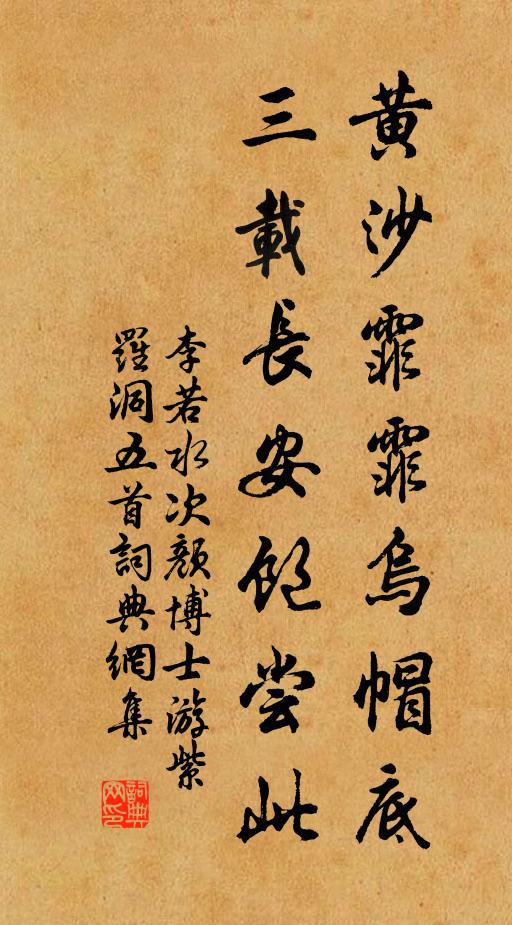 黄沙霏霏烏帽底
三載長安飽嘗此
李若水次顏博士游紫
羅洞五首詞典網集
詞典网印